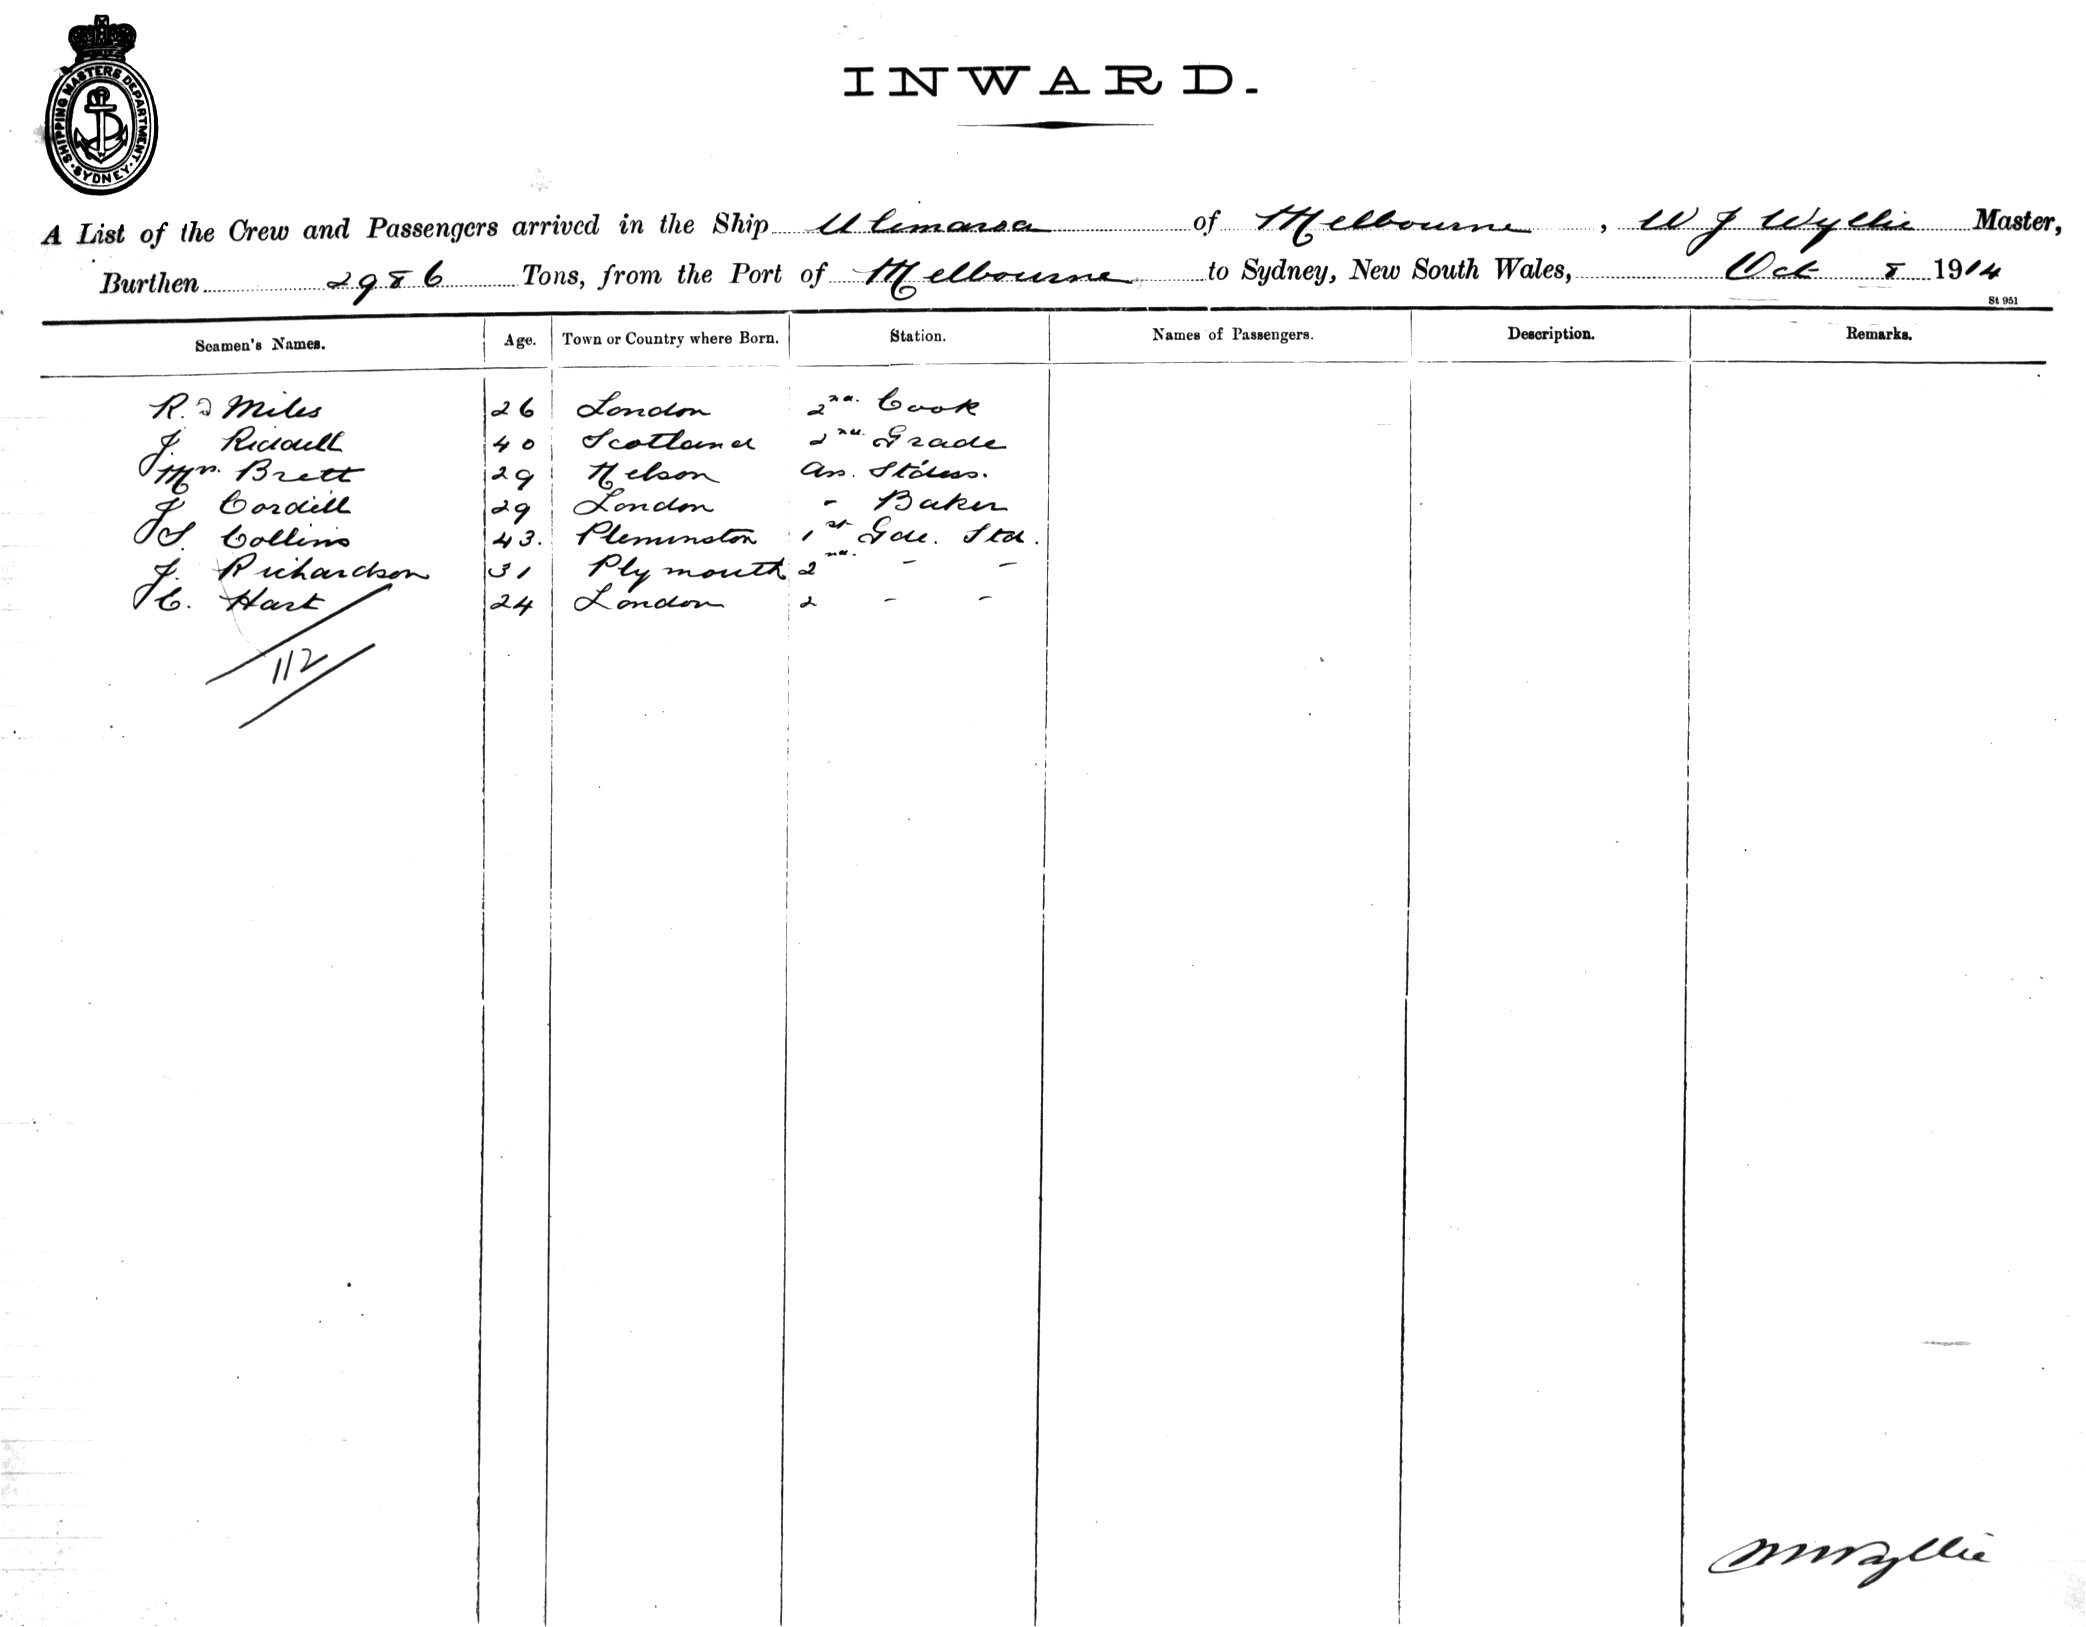 SHIPPING MASTERS DEPARTMENT · SYDNEY ·
INWARD.
A List of the Crew and Passengers arrived in the Ship Ulimaroa of Melbourne, W J Wyllie Master,
Burthen 2986 Tons, from the Port of Melbourne to Sydney, New South Wales, Oct 8 1914
St 951
Seamen's Names. Age. Town or Country where Born. Station. Names of Passengers. Description. Remarks.
R. Miles 26 London 2nd. Cook
J. Riddell 40 Scotland 2nd. Grade
Mrs. Brett 29 Nelson As. Stdess.
J Cordill 29 London " Baker
S. Collins 43. Pleminston 1st Gde. Std.
J. Richardson 31 Plymouth 2nd. " "
C. Hart 24 London 2 " "
112
WWyllie